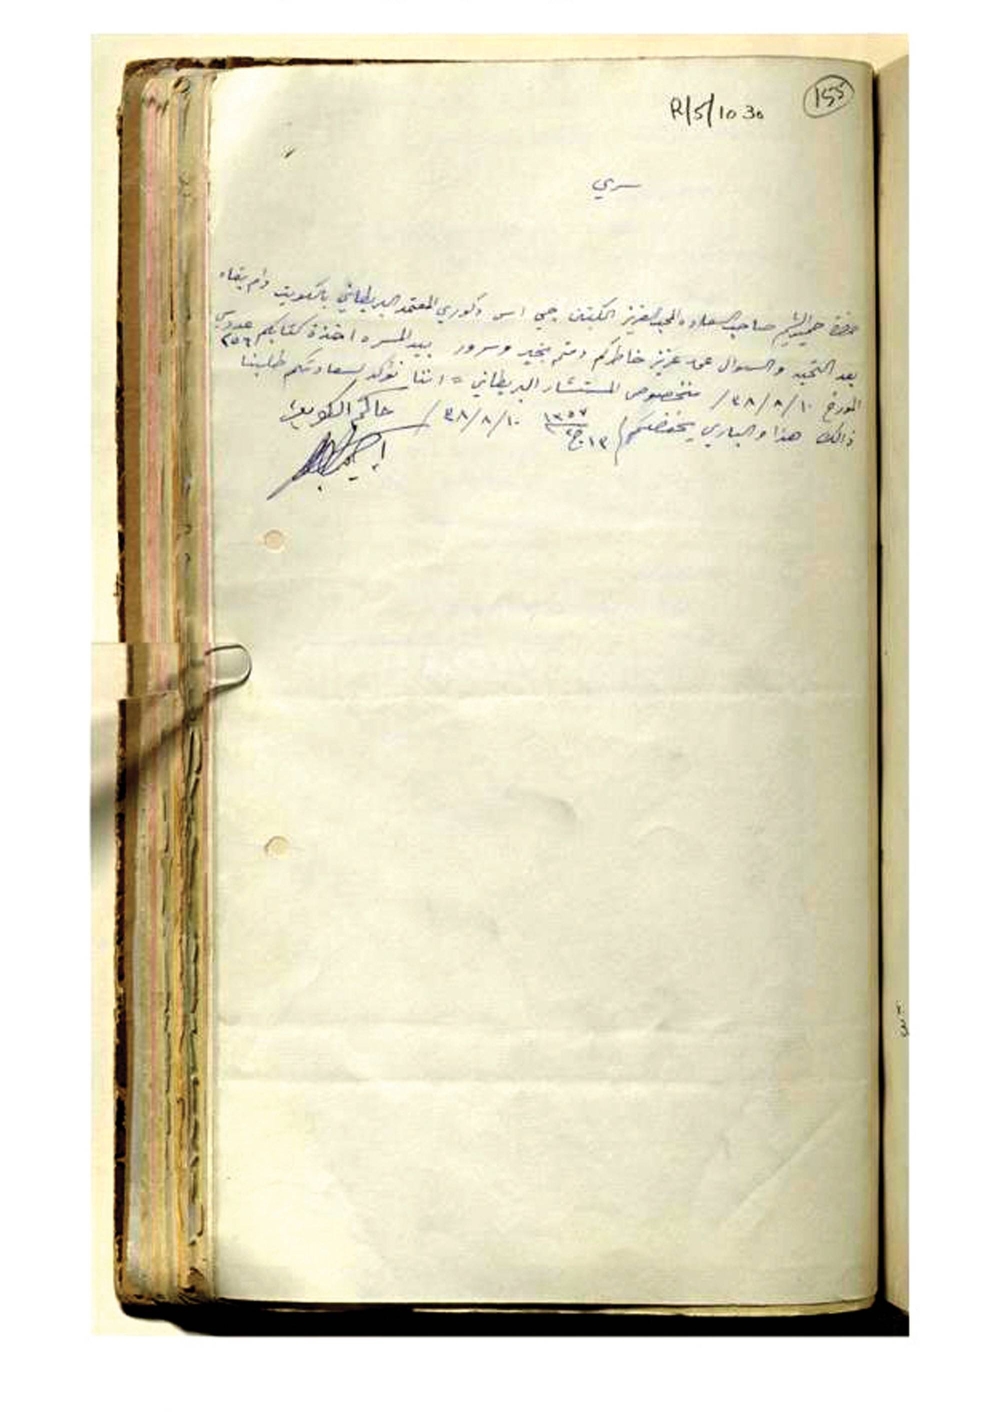 155
R/5/1030
سري
حضرة حميد الشيم صاحب السعاده المحب العزيز الكبتن جي اس دكوري المعتمد البريطاني بالكويت دام بقاه
بعد التحيه والسوال عن عزيز خاطركم دمتم بخير وسرور بيد المسره اخذة كتابكم عدد سي ٢٥٦
المورخ ٣٨/٨/١٠/ متخصوص المستشار البريطاني = اننا نؤكد لسعادتكم طلبنا
ذالك هذا والباري يحفضكم / ١٣ ج ٢ ١٣٥٧ ٣٨/٨/١٠/ حاكم الكويت